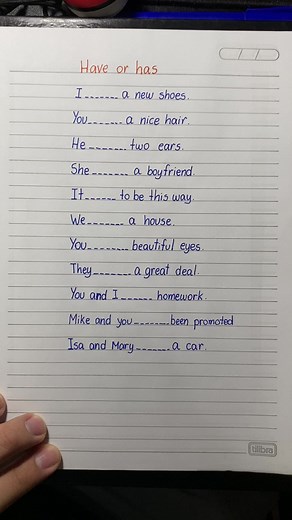 / /
Have or has
I....... a new shoes.
You....... a nice hair.
He ........ two ears.
She ....... a boyfriend.
It...... to be this way.
We ....... a house.
You........ beautiful eyes.
They....... a great deal.
You and I ...... homework.
Mike and you ........ been promoted
Isa and Mary ....... a car.
tilibra